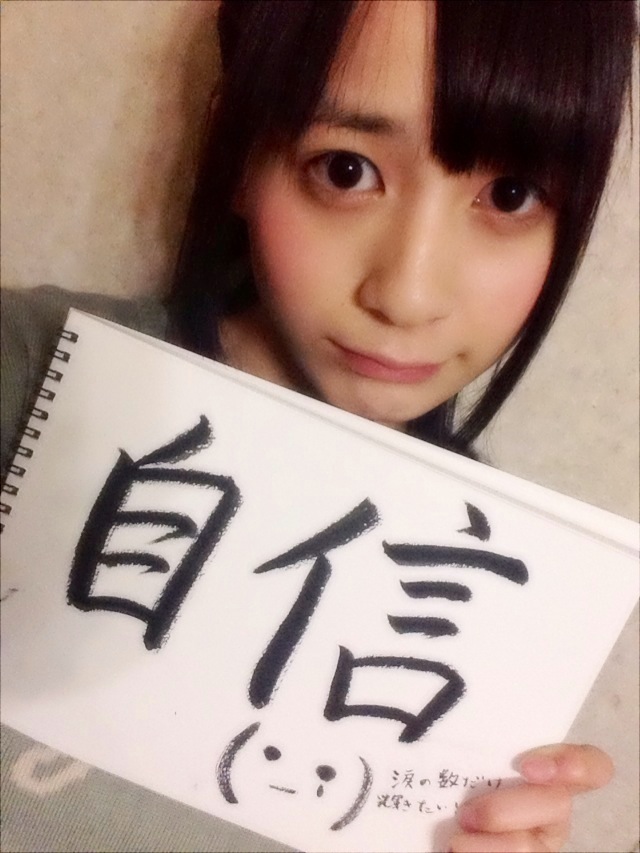 自信
涙の数だけ
輝きたい